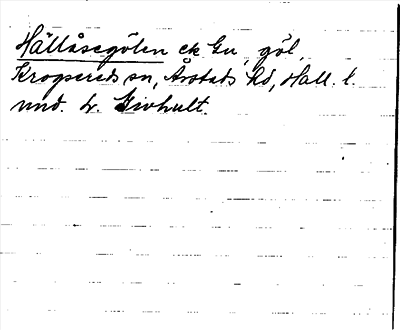 Hällåsegölen ek Gu, göl,
Krogsereds sn, Årstads hd, Hall. l.
und. h. Givhult.